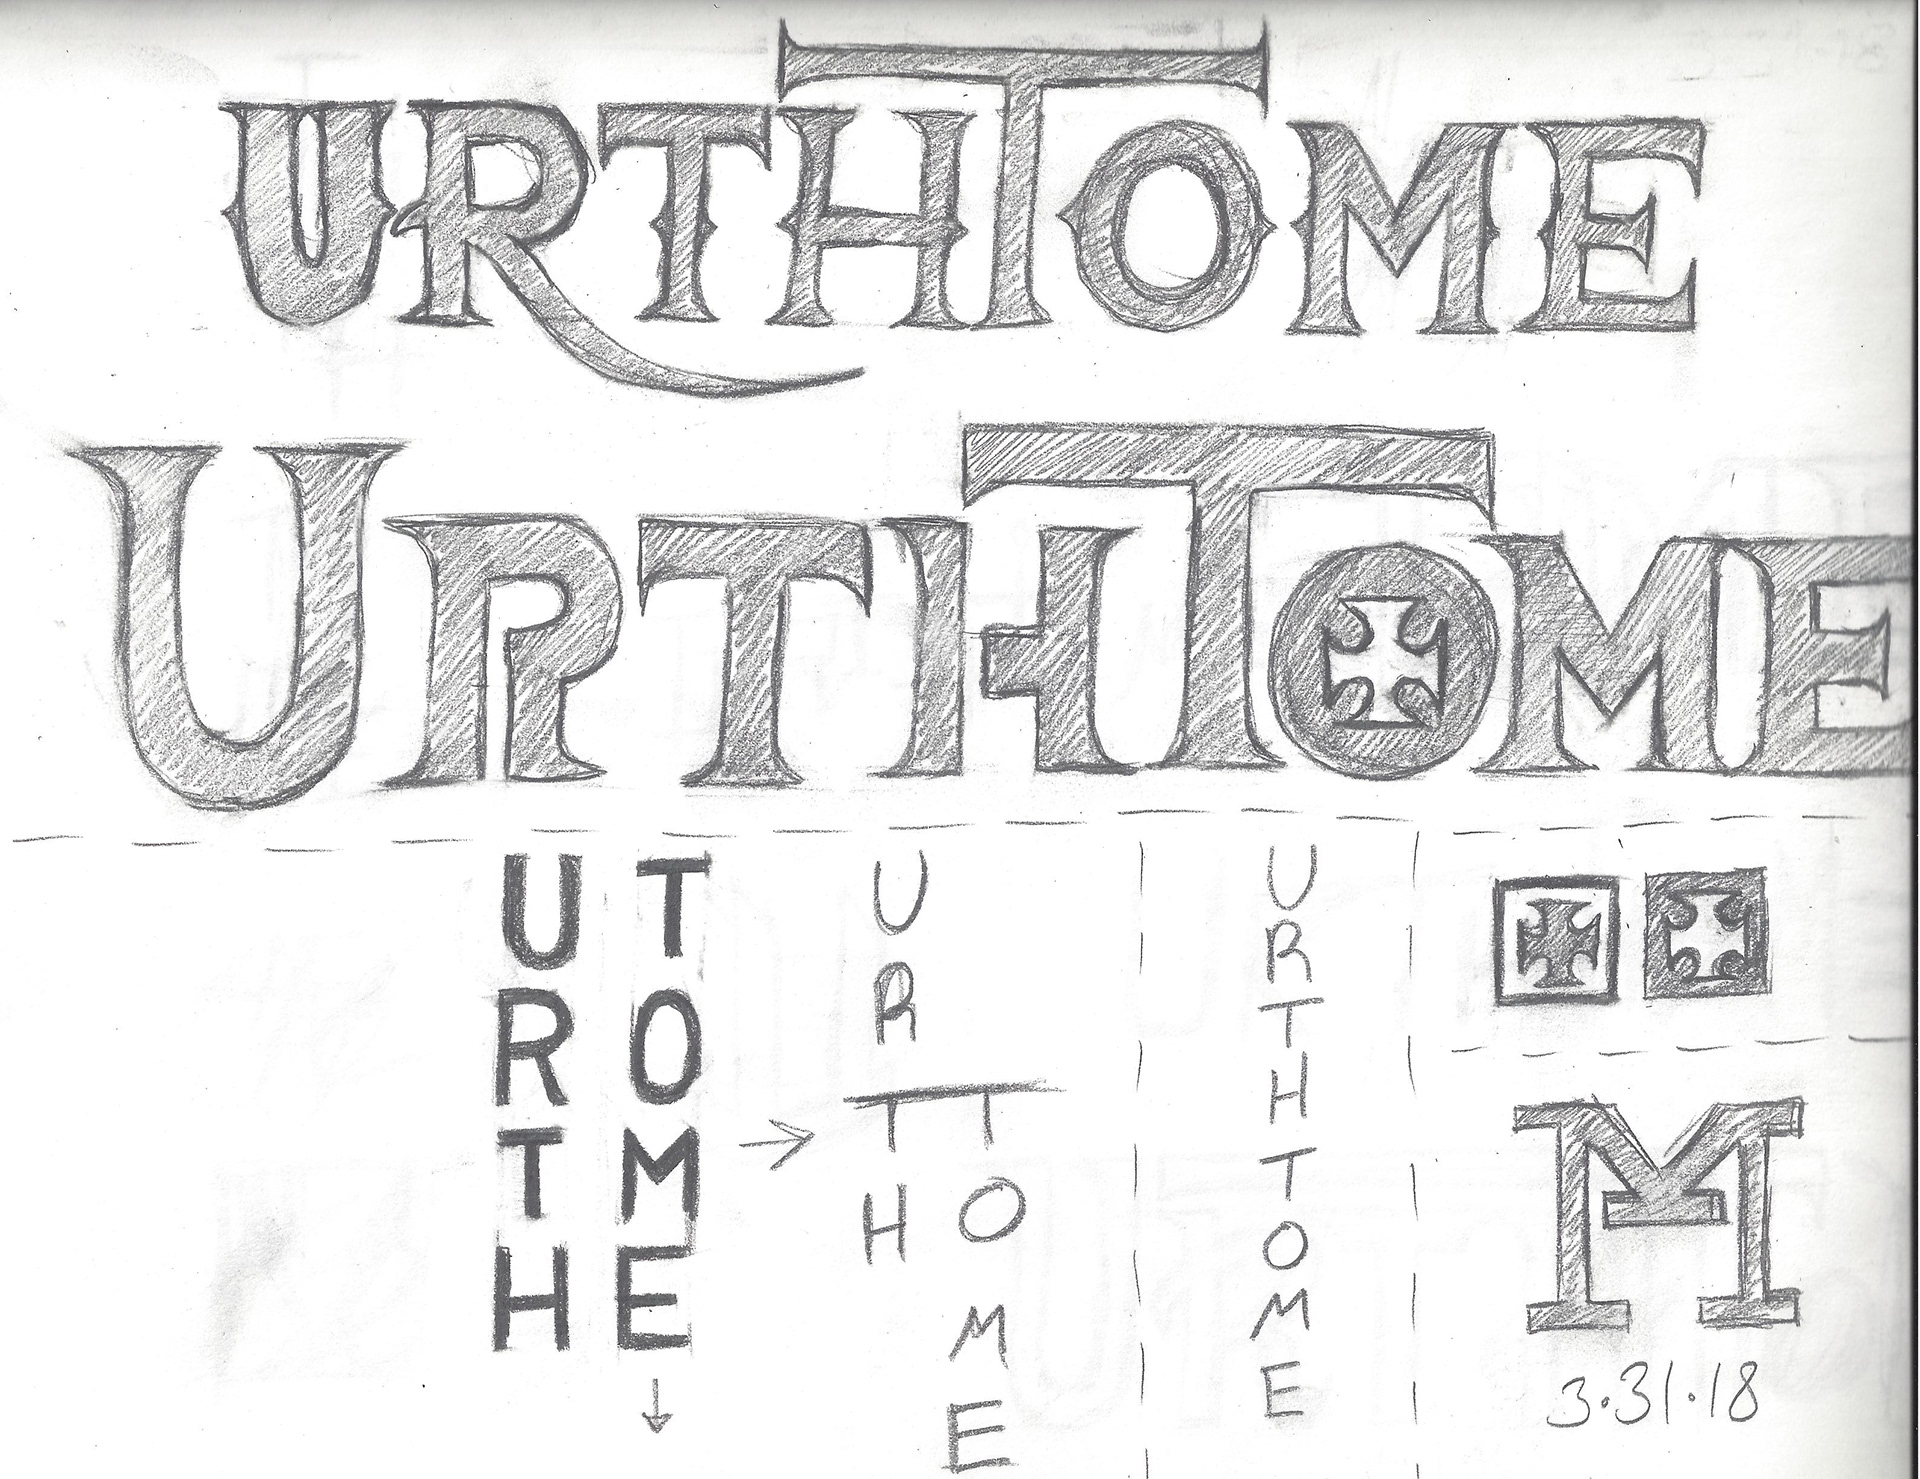 URTHTOME
URTHTOME
URTH
TOME
URTH
TOME
URTHTOME
M
3.31.18